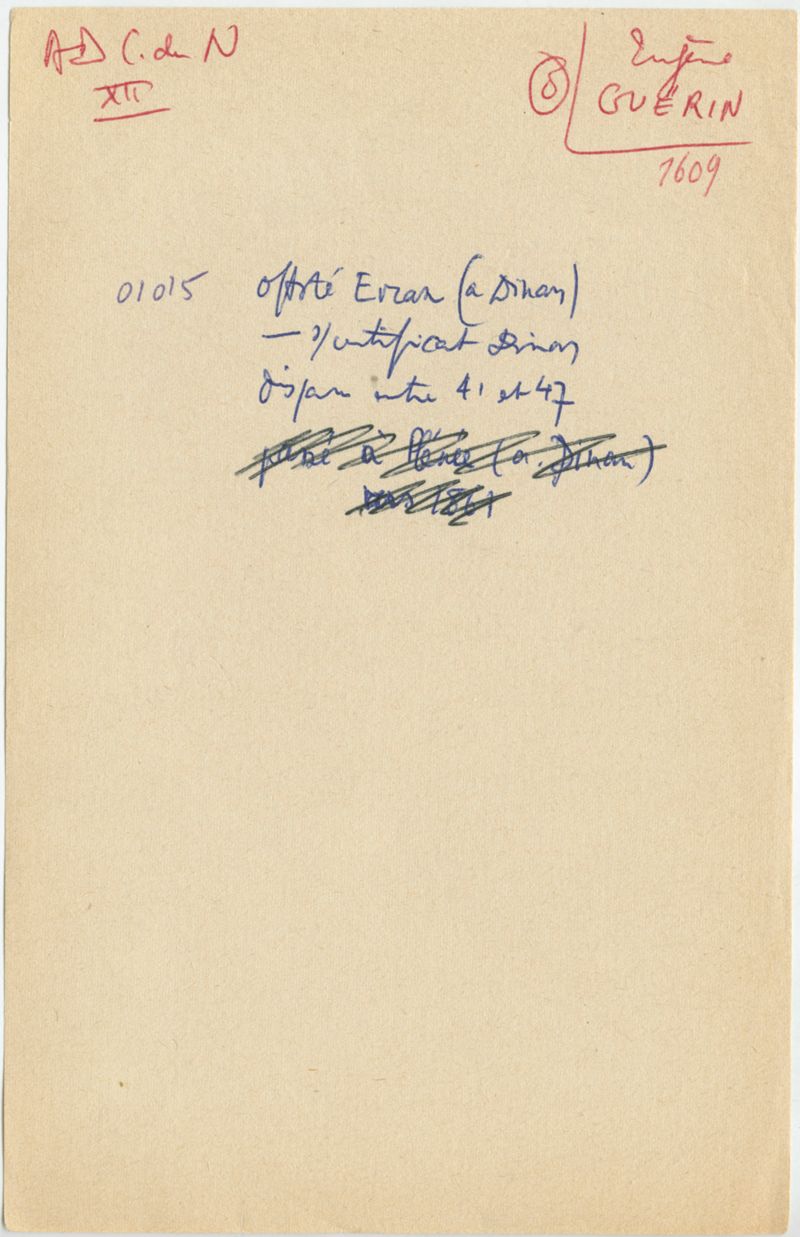 AD C. du N
XII
Eugène
6 GUÉRIN
1609
01015 off sté Evran (a Dinan)
— s/ certificat Dinan
dispar entre 41 et 47
passé à Plénée (a. Dinan)
vers 1861